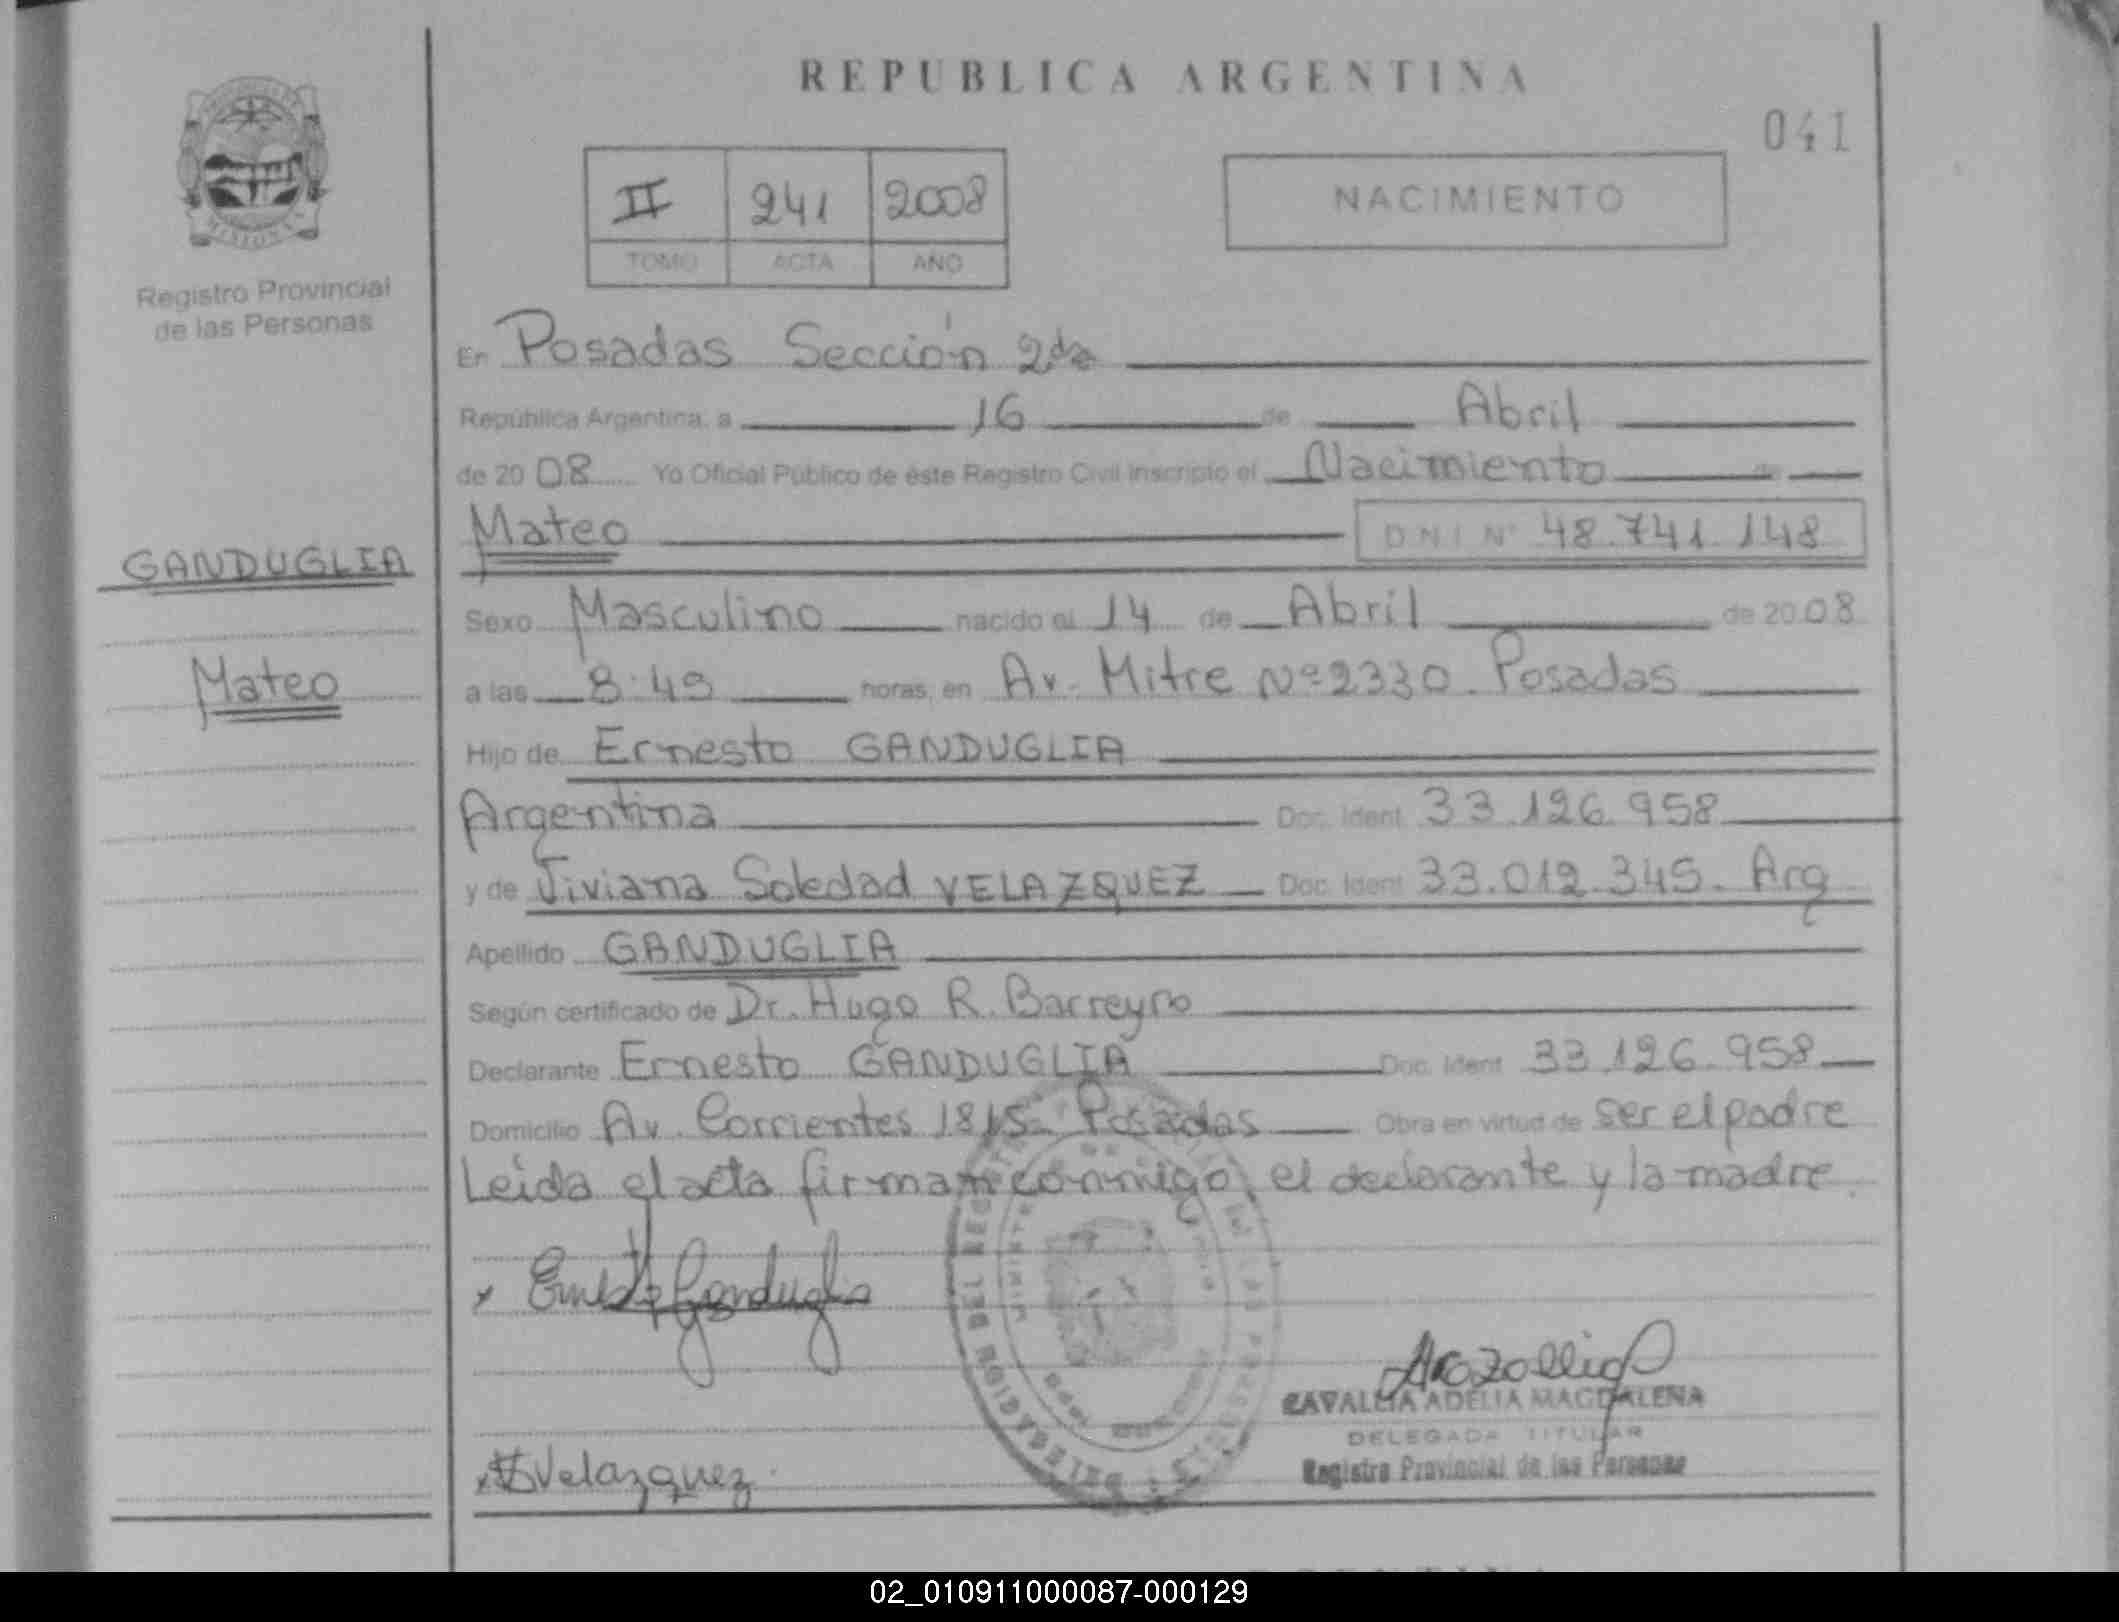 REPUBLICA ARGENTINA
041
II 241 2008
TOMO ACTA AÑO
NACIMIENTO
MISIONES
Registro Provincial
de las Personas
En Posadas Sección 2da
República Argentina, a 16 de Abril
de 2008 Yo Oficial Público de éste Registro Civil inscripto el Nacimiento de
Mateo DNI Nº 48.741.148
GANDUGLIA
Mateo
Sexo Masculino nacido el 14 de Abril de 2008
a las 8:49 horas, en Av. Mitre Nº2330. Posadas
Hijo de Ernesto GANDUGLIA
Argentina Doc. Ident 33.126.958
y de Viviana Soledad VELAZQUEZ Doc. Ident 33.012.345. Arg
Apellido GANDUGLIA
Según certificado de Dr. Hugo R. Barreyro
Declarante Ernesto GANDUGLIA Doc. Ident 33.126.958
Domicilio Av. Corrientes 1815 Posadas Obra en virtud de ser el padre
Leida el acta firman conmigo, el declarante y la madre.
x Ernesto Ganduglia
CAVALLIA ADELIA MAGDALENA
DELEGADA TITULAR
Registro Provincial de las Personas
Velazquez
02_010911000087-000129